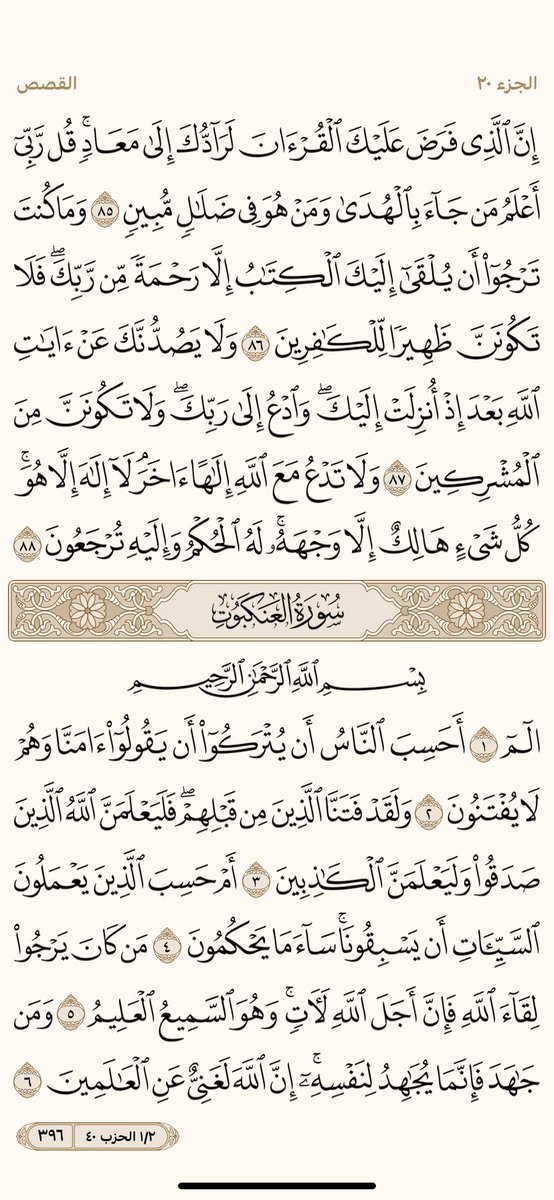 الجزء ٢٠
القصص
إِنَّ ٱلَّذِى فَرَضَ عَلَيْكَ ٱلْقُرْءَانَ لَرَآدُّكَ إِلَىٰ مَعَادٍۢ ۚ قُل رَّبِّىٓ
أَعْلَمُ مَن جَآءَ بِٱلْهُدَىٰ وَمَنْ هُوَ فِى ضَلَـٰلٍۢ مُّبِينٍۢ ٨٥ وَمَا كُنتَ
تَرْجُوٓا۟ أَن يُلْقَىٰٓ إِلَيْكَ ٱلْكِتَـٰبُ إِلَّا رَحْمَةًۭ مِّن رَّبِّكَ ۖ فَلَا
تَكُونَنَّ ظَهِيرًۭا لِّلْكَـٰفِرِينَ ٨٦ وَلَا يَصُدُّنَّكَ عَنْ ءَايَـٰتِ
ٱللَّهِ بَعْدَ إِذْ أُنزِلَتْ إِلَيْكَ ۖ وَٱدْعُ إِلَىٰ رَبِّكَ ۖ وَلَا تَكُونَنَّ مِنَ
ٱلْمُشْرِكِينَ ٨٧ وَلَا تَدْعُ مَعَ ٱللَّهِ إِلَـٰهًا ءَاخَرَ ۘ لَآ إِلَـٰهَ إِلَّا هُوَ ۚ
كُلُّ شَىْءٍ هَالِكٌ إِلَّا وَجْهَهُۥ ۚ لَهُ ٱلْحُكْمُ وَإِلَيْهِ تُرْجَعُونَ ٨٨
سُورَةُ العَنكَبُوتِ
بِسْمِ ٱللَّهِ ٱلرَّحْمَـٰنِ ٱلرَّحِيمِ
الٓمٓ ١ أَحَسِبَ ٱلنَّاسُ أَن يُتْرَكُوٓا۟ أَن يَقُولُوٓا۟ ءَامَنَّا وَهُمْ
لَا يُفْتَنُونَ ٢ وَلَقَدْ فَتَنَّا ٱلَّذِينَ مِن قَبْلِهِمْ ۖ فَلَيَعْلَمَنَّ ٱللَّهُ ٱلَّذِينَ
صَدَقُوا۟ وَلَيَعْلَمَنَّ ٱلْكَـٰذِبِينَ ٣ أَمْ حَسِبَ ٱلَّذِينَ يَعْمَلُونَ
ٱلسَّيِّـَٔاتِ أَن يَسْبِقُونَا ۚ سَآءَ مَا يَحْكُمُونَ ٤ مَن كَانَ يَرْجُوا۟
لِقَآءَ ٱللَّهِ فَإِنَّ أَجَلَ ٱللَّهِ لَـَٔاتٍۢ ۚ وَهُوَ ٱلسَّمِيعُ ٱلْعَلِيمُ ٥ وَمَن
جَـٰهَدَ فَإِنَّمَا يُجَـٰهِدُ لِنَفْسِهِۦٓ ۚ إِنَّ ٱللَّهَ لَغَنِىٌّ عَنِ ٱلْعَـٰلَمِينَ ٦
١/٢ الحزب ٤٠
٣٩٦